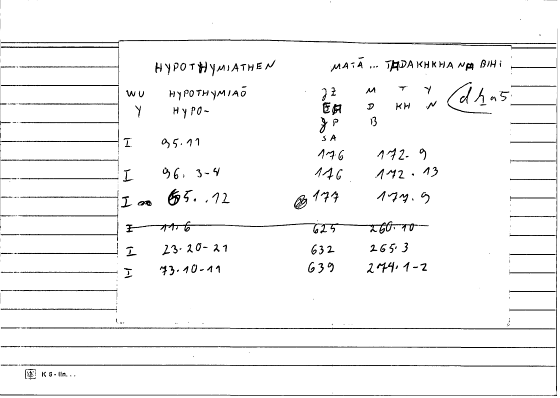 HYPOTHYMIATHEN MATĀ ... THDAKHKHANA BIHI
WU HYPOTHYMIAŌ JZ M T Y
Y HYPO- D KH N
JP B
SA
I 95.11
176 172.9
I 96. 3-4 176 172.13
I 65..12 177 177.9
I 11.6 625 260.10
I 23.20-21 632 265.3
I 73.10-11 639 274.1-2
K 5-lin...